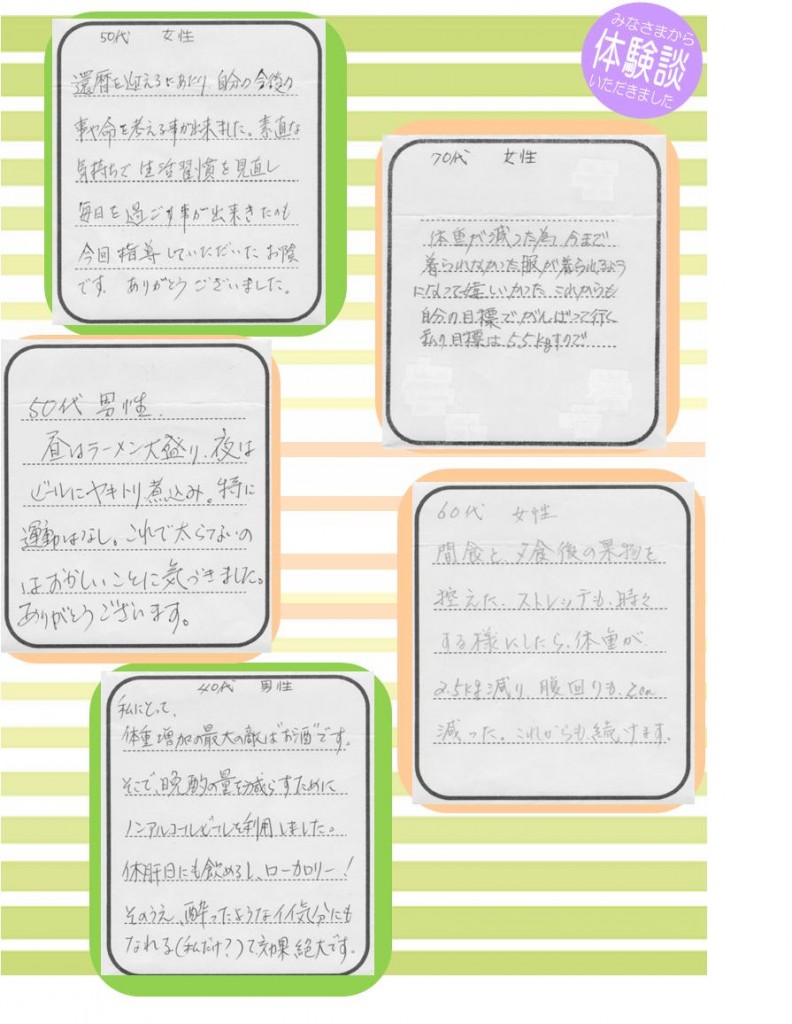 みなさまから
体験談
いただきました
50代 女性
還暦を迎えるにあたり、自分の今後の
事や命を考える事が出来ました。素直な
気持ちで生活習慣を見直し
毎日を過ごす事が出来きたのも
今回指導していただいたお陰
です。ありがとうございました。
70代 女性
体重が減った為、今まで
着られなかった服が着られるよう
になって嬉しいかった これからも
自分の目標でがんばって行く
私の目標は55kgすので
50代 男性.
昼はラーメン大盛り、夜は
ビールにヤキトリ煮込み。特に
運動はなし。これで太らてないの
はおかしいことに気づきました。
ありがとうございます。
60代 女性
間食と、夕食後の果物を
控えた、ストレッチも、時々
する様にしたら、体重が
2.5kg減り、腹回りも、2cm
減った。これからも、続けます。
40代 男性
私にとって、
体重増加の最大の敵は"お酒"です。
そこで、晩酌の量を減らすために
ノンアルコールビールを利用しました。
休肝日にも飲めるし、ローカロリー！
そのうえ、酔ったようなイイ気分にも
なれる(私だけ?)で、効果絶大です。